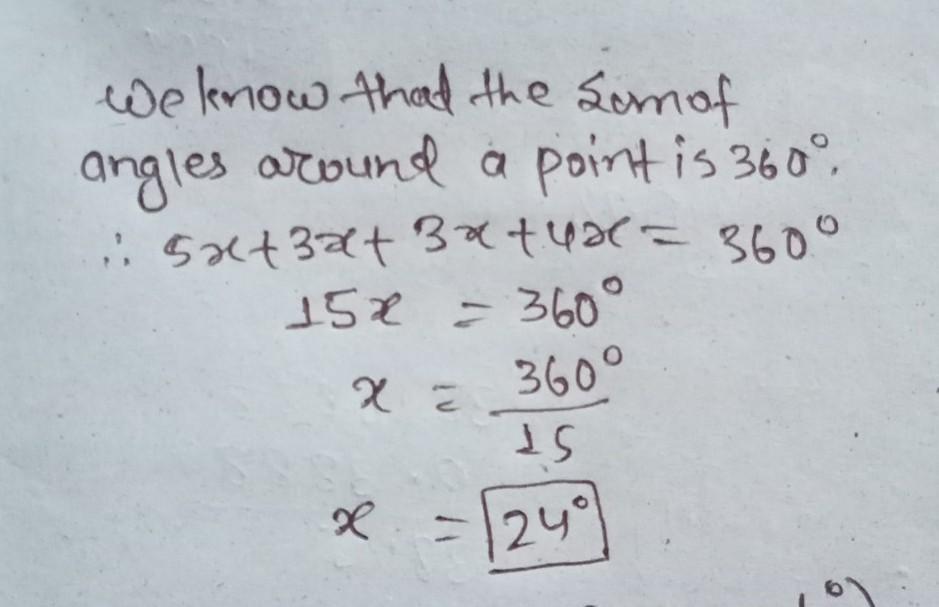 We know that the Sum of
angles around a point is 360°.
∴ 5x + 3x + 3x + 4x = 360°
15x = 360°
x = 360° / 15
x = 24°